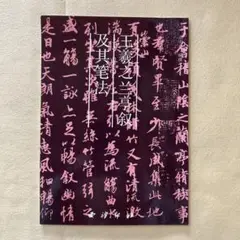 王羲之兰亭叙
及其笔法
于會稽山陰之蘭亭脩稧事
也羣賢畢至少長咸集此地
崇山
竹又有清流激
為流觴曲水
列坐其次雖無絲竹管弦
盛一觴一詠亦足以暢敘幽情
是日也天朗氣清惠風和暢仰